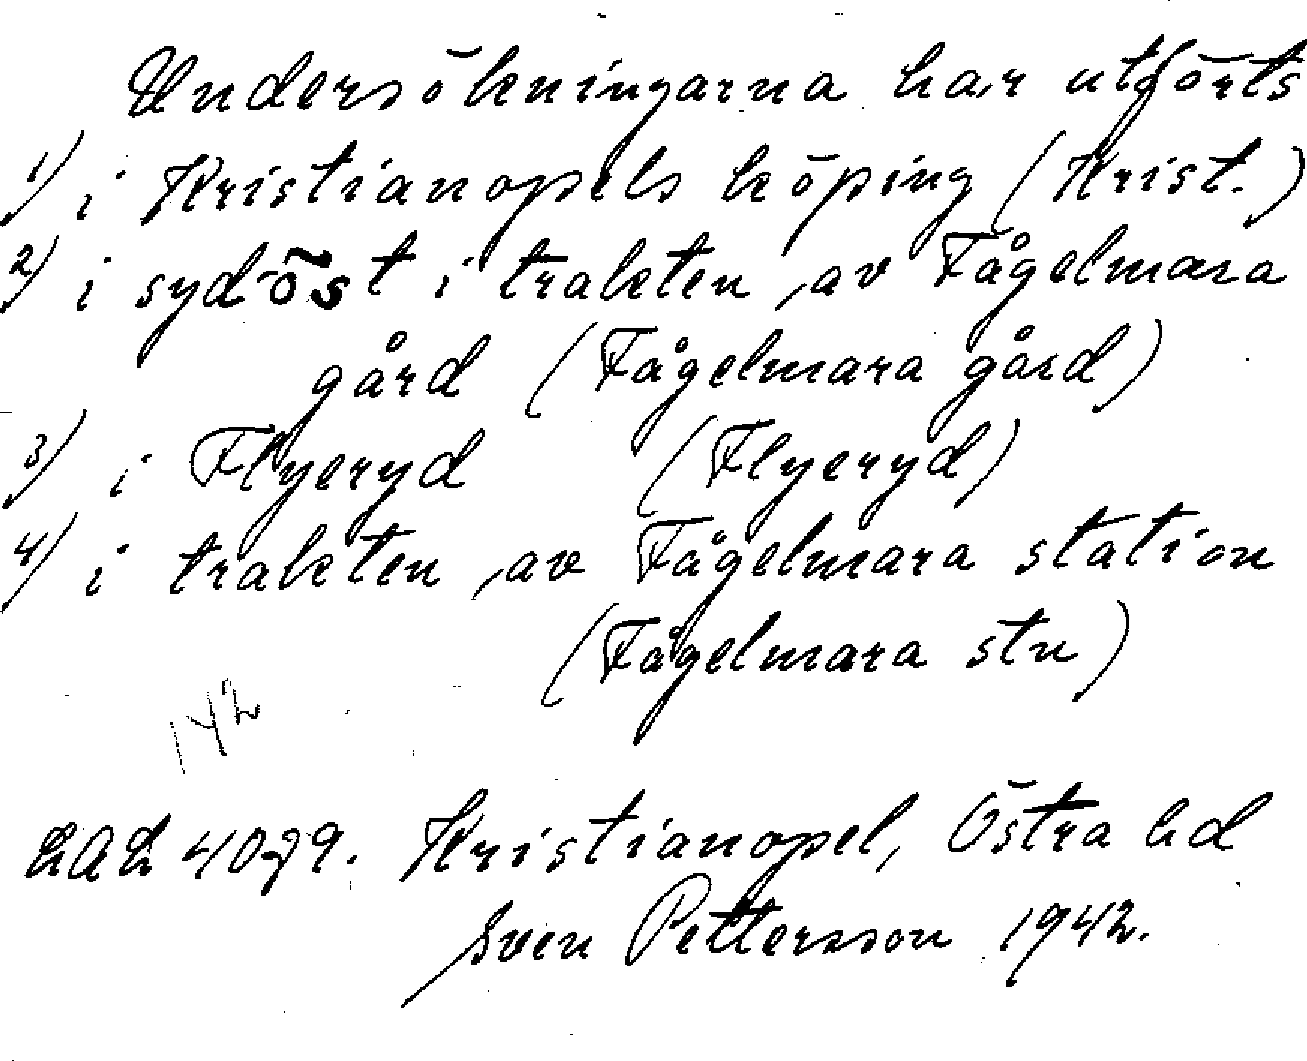 Undersökningarna har utförts
1) i Kristianopels köping (Krist.)
2) i sydöst i trakten av Fågelmara
gård (Fågelmara gård)
3) i Flyeryd (Flyeryd)
4) i trakten av Fågelmara station
(Fågelmara stn)
142
LAL 4079. Kristianopel, Östra hd
Sven Pettersson 1942.